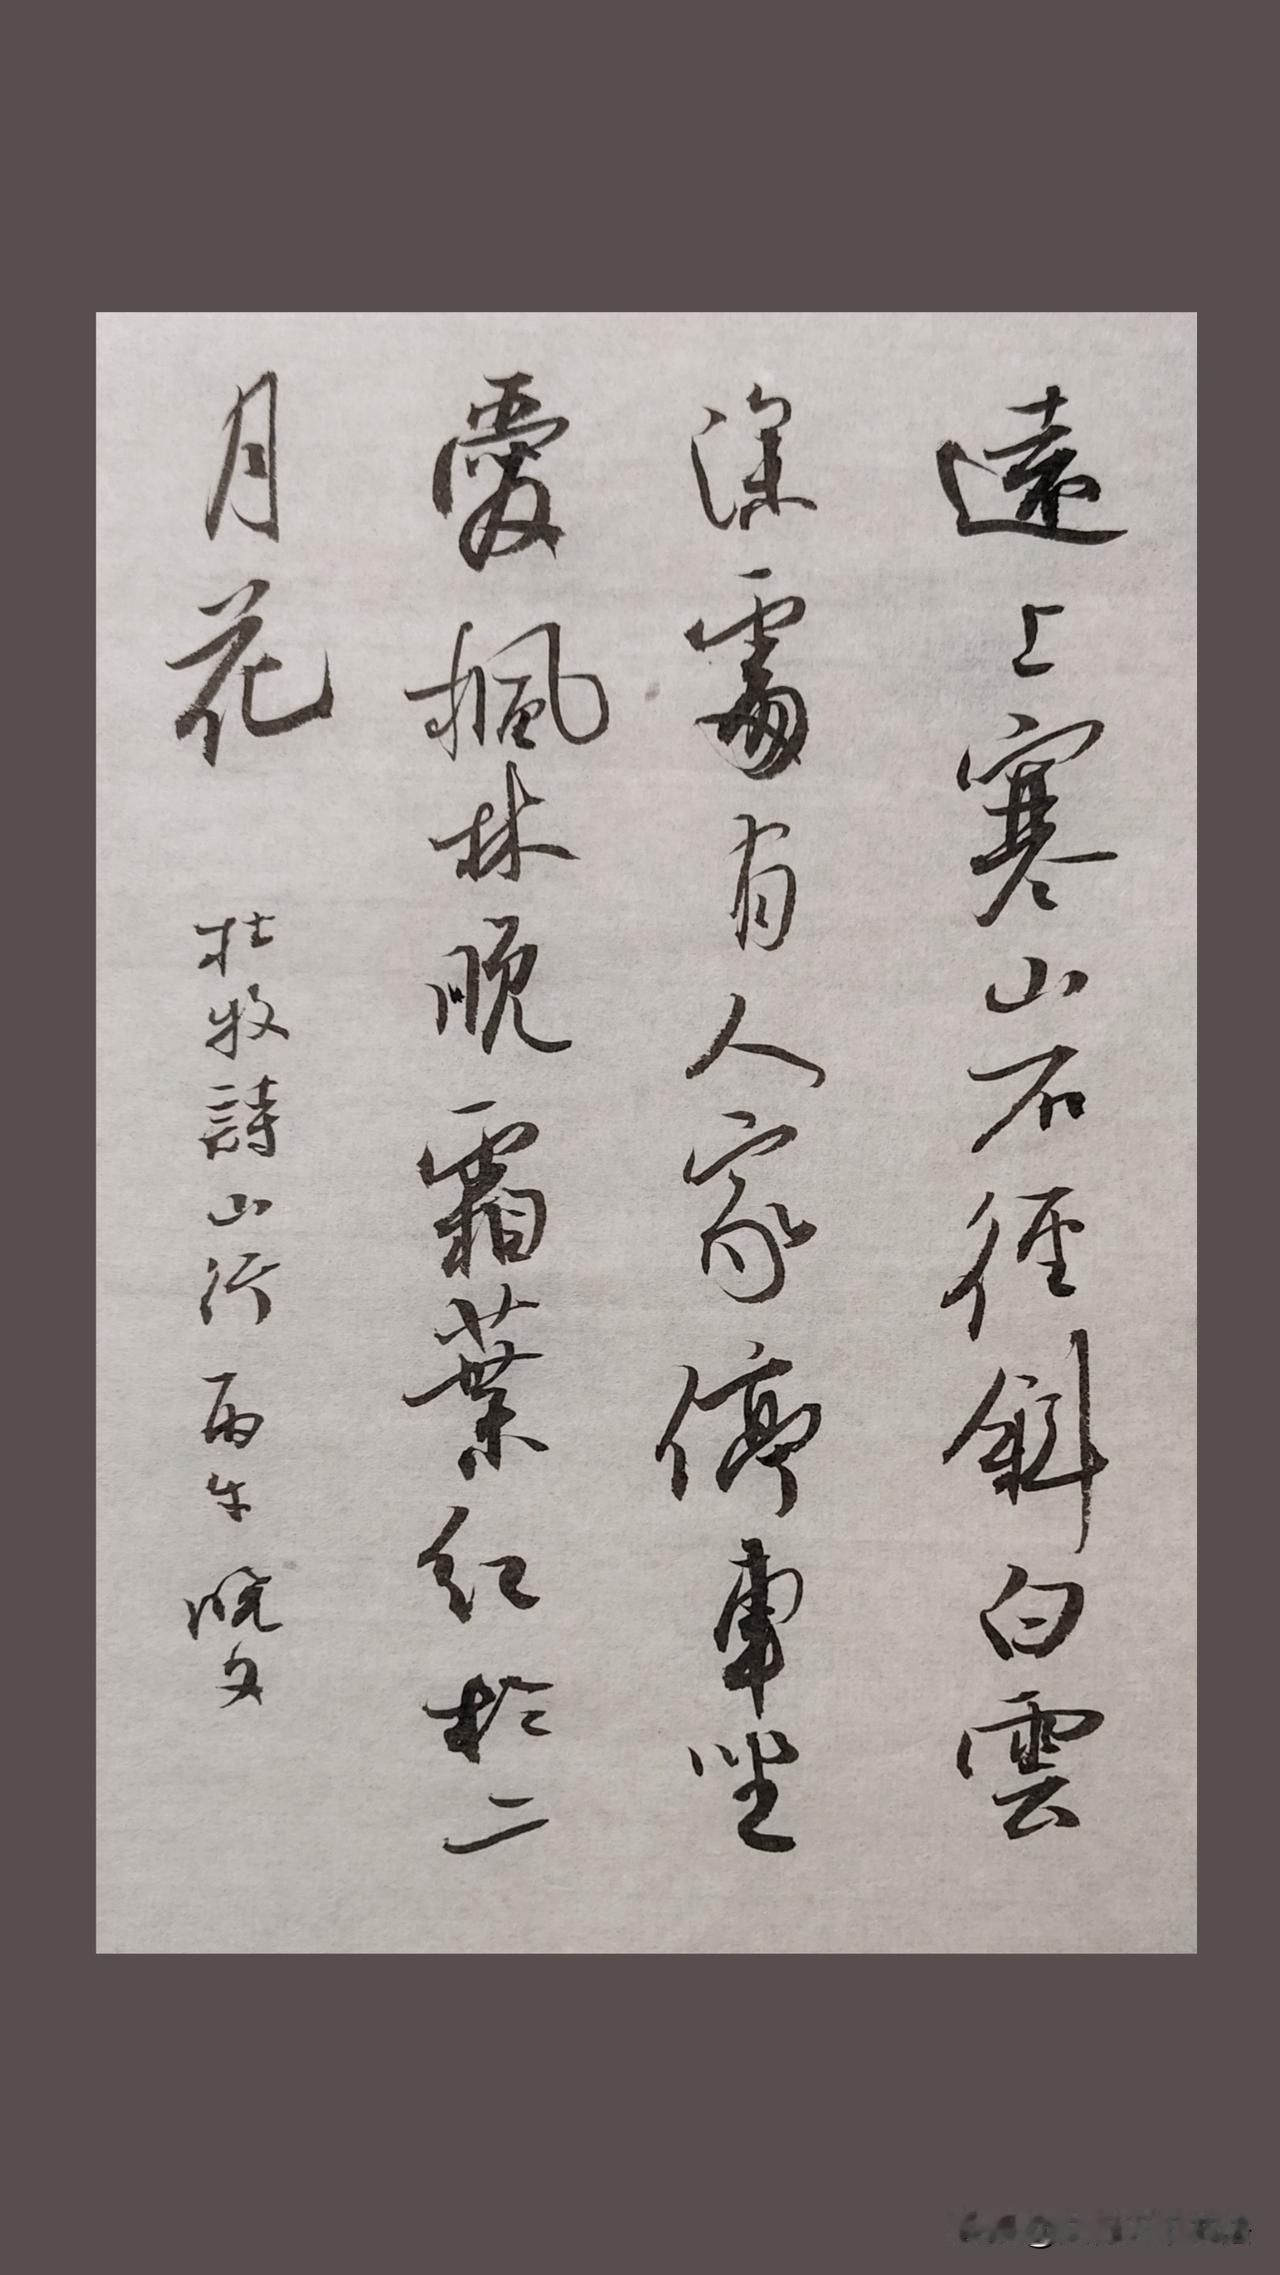 遠上寒山石徑斜白雲
深處有人家停車坐
愛楓林晚霜葉紅於二
月花
杜牧詩山行 丙午 晓文